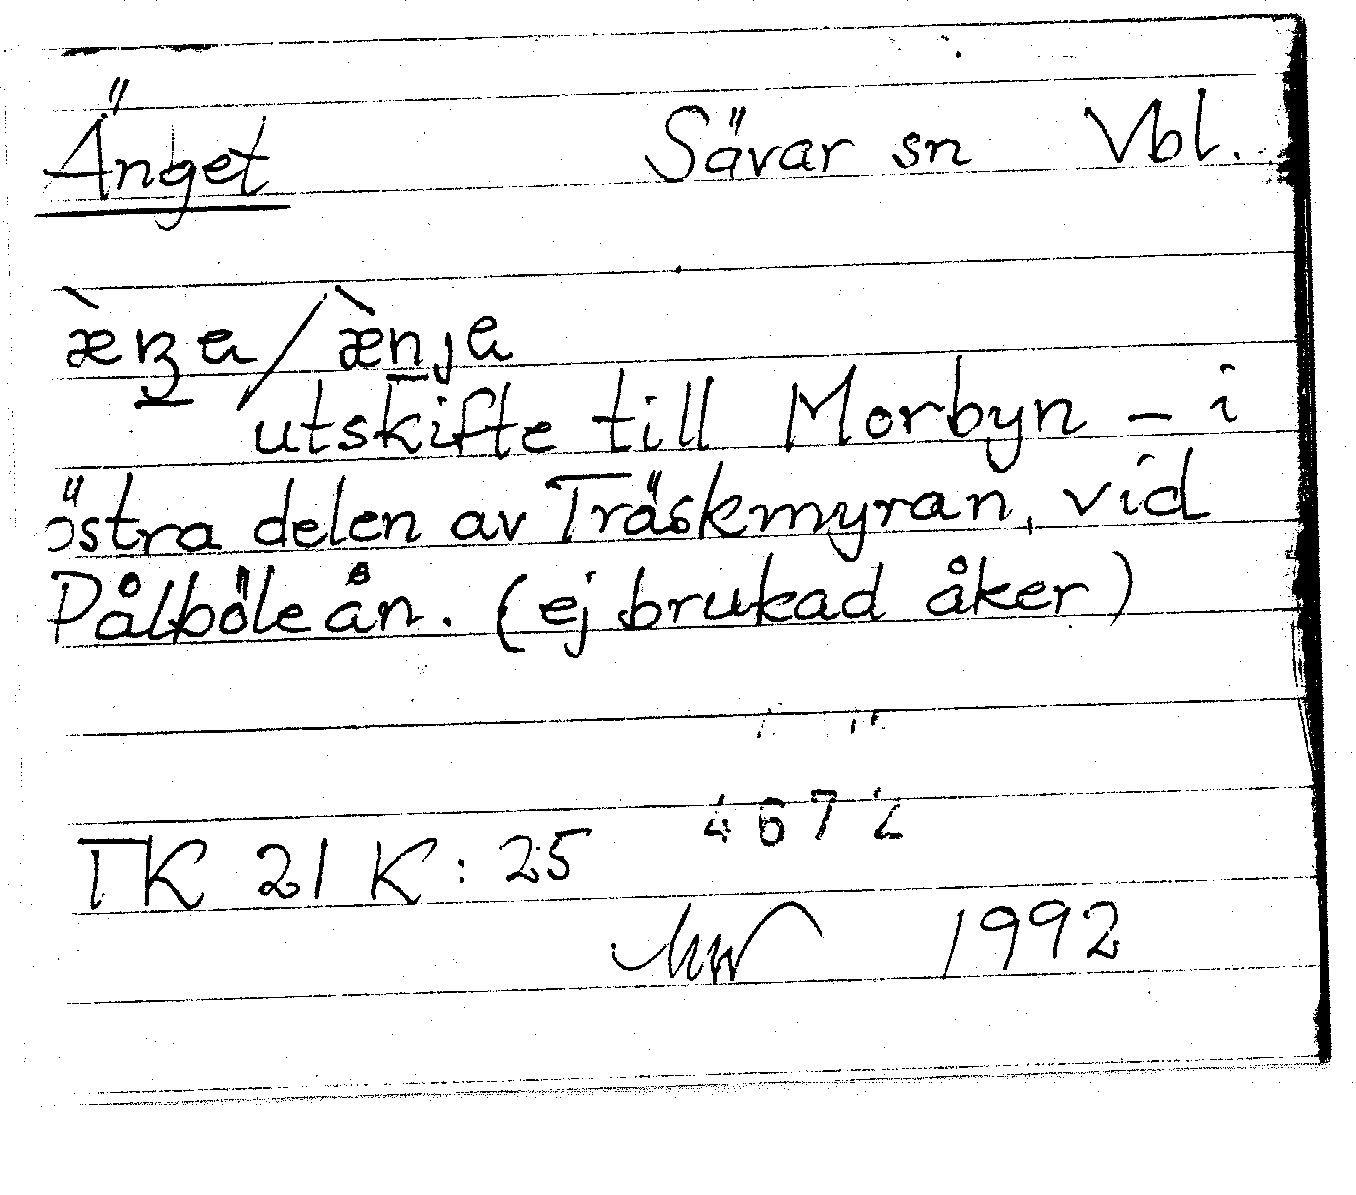 Änget Sävar sn Vbl.
utskifte till Morbyn – i
östra delen av Träskmyran, vid
Pålböleån. (ej brukad åker)
4672
TK 21 K: 25
1992